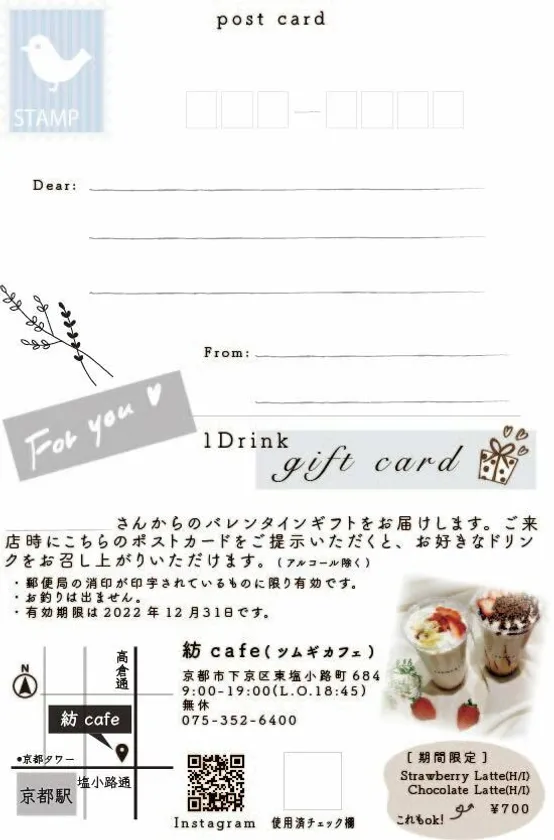 post card
STAMP
Dear:
From:
For you
1Drink
gift card
さんからのバレンタインギフトをお届けします。ご来
店時にこちらのポストカードをご提示いただくと、お好きなドリン
クをお召し上がりいただけます。(アルコール除く)
・郵便局の消印が印字されているものに限り有効です。
・お釣りは出ません。
・有効期限は2022年12月31日です。
紡 cafe(ツムギカフェ)
京都市下京区東塩小路町684
9:00-19:00(L.O.18:45)
無休
075-352-6400
N
高倉通
紡 cafe
●京都タワー
塩小路通
京都駅
Instagram
使用済チェック欄
[期間限定]
Strawberry Latte(H/I)
Chocolate Latte(H/I)
¥700
これもok!